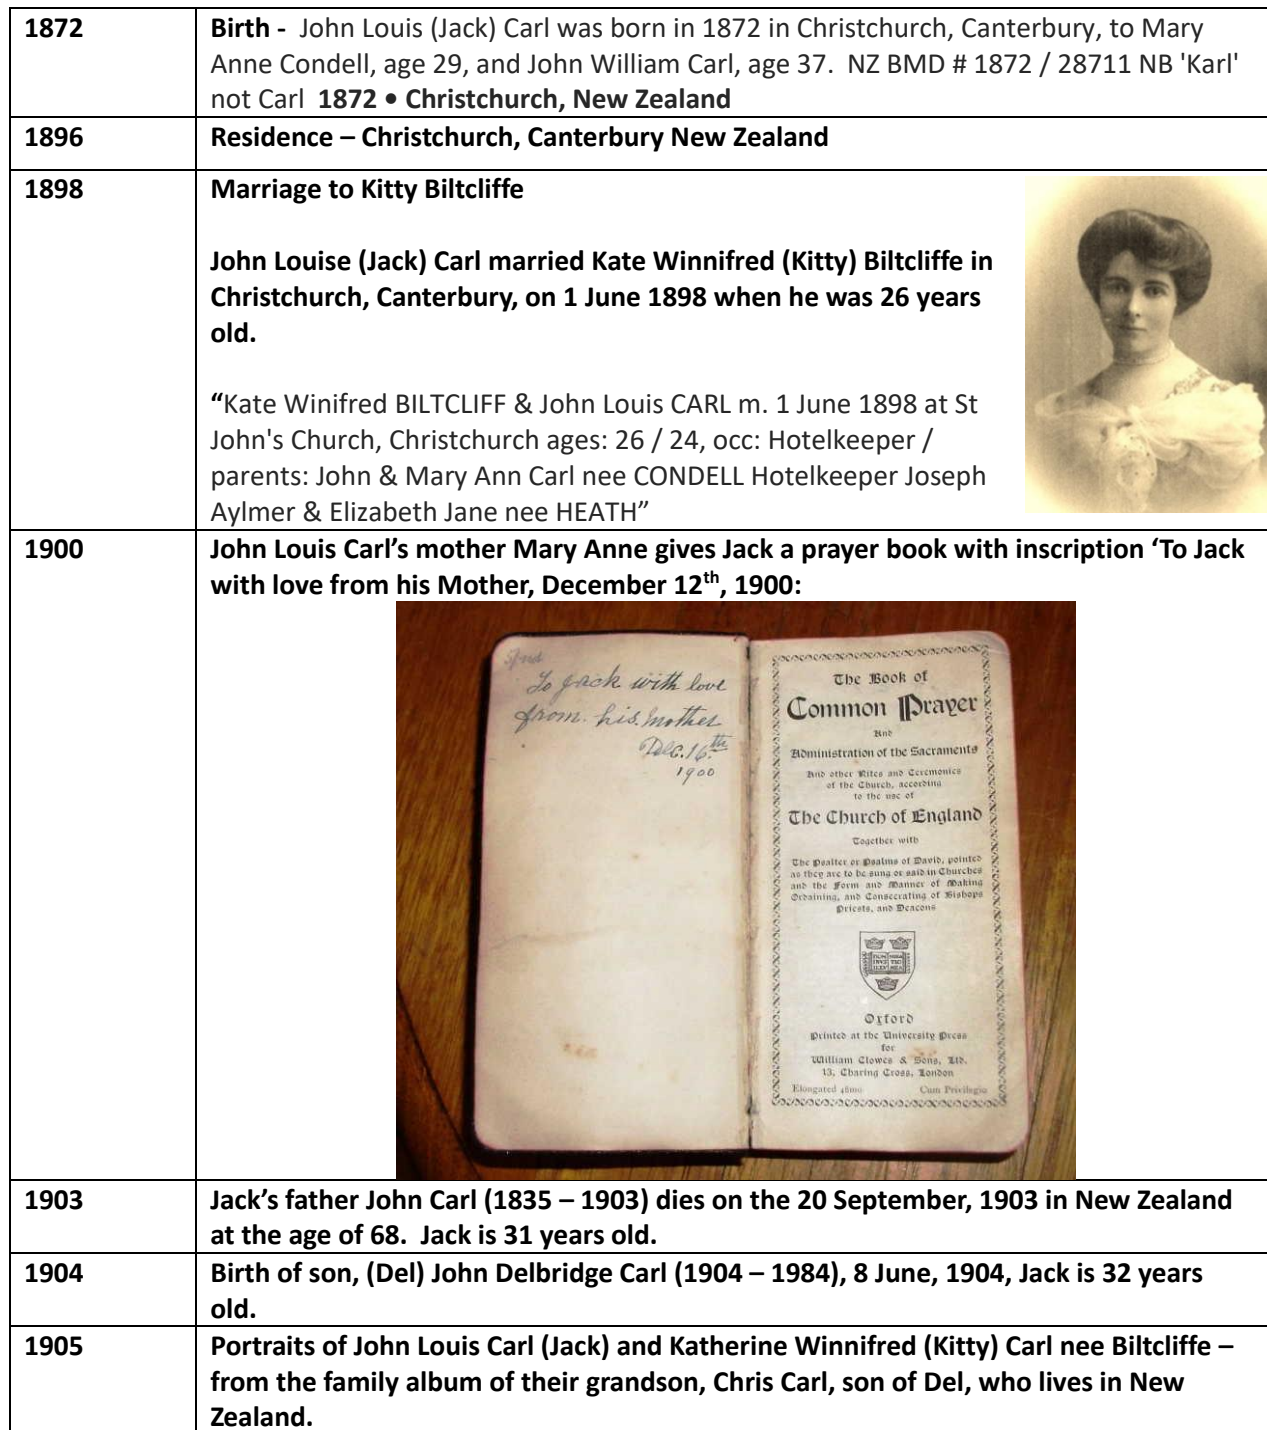 1872
Birth - John Louis (Jack) Carl was born in 1872 in Christchurch, Canterbury, to Mary
Anne Condell, age 29, and John William Carl, age 37. NZ BMD # 1872 / 28711 NB 'Karl'
not Carl 1872 • Christchurch, New Zealand
1896
Residence – Christchurch, Canterbury New Zealand
1898
Marriage to Kitty Biltcliffe
John Louise (Jack) Carl married Kate Winnifred (Kitty) Biltcliffe in
Christchurch, Canterbury, on 1 June 1898 when he was 26 years
old.
“Kate Winifred BILTCLIFF & John Louis CARL m. 1 June 1898 at St
John's Church, Christchurch ages: 26 / 24, occ: Hotelkeeper /
parents: John & Mary Ann Carl nee CONDELL Hotelkeeper Joseph
Aylmer & Elizabeth Jane nee HEATH”
1900
John Louis Carl’s mother Mary Anne gives Jack a prayer book with inscription ‘To Jack
with love from his Mother, December 12th, 1900:
To Jack with love
from his Mother
Dec. 16th
1900
The Book of
Common Prayer
And
Administration of the Sacraments
And other Rites and Ceremonies
of the Church, according
to the use of
The Church of England
Together with
The Psalter or Psalms of David, pointed
as they are to be sung or said in Churches
and the Form and Manner of Making
Ordaining, and Consecrating of Bishops
Priests, and Deacons
Oxford
Printed at the University Press
for
William Clowes & Sons, Ltd.
13, Charing Cross, London
Elongated 48mo Cum Privilegio
1903
Jack’s father John Carl (1835 – 1903) dies on the 20 September, 1903 in New Zealand
at the age of 68. Jack is 31 years old.
1904
Birth of son, (Del) John Delbridge Carl (1904 – 1984), 8 June, 1904, Jack is 32 years
old.
1905
Portraits of John Louis Carl (Jack) and Katherine Winnifred (Kitty) Carl nee Biltcliffe –
from the family album of their grandson, Chris Carl, son of Del, who lives in New
Zealand.